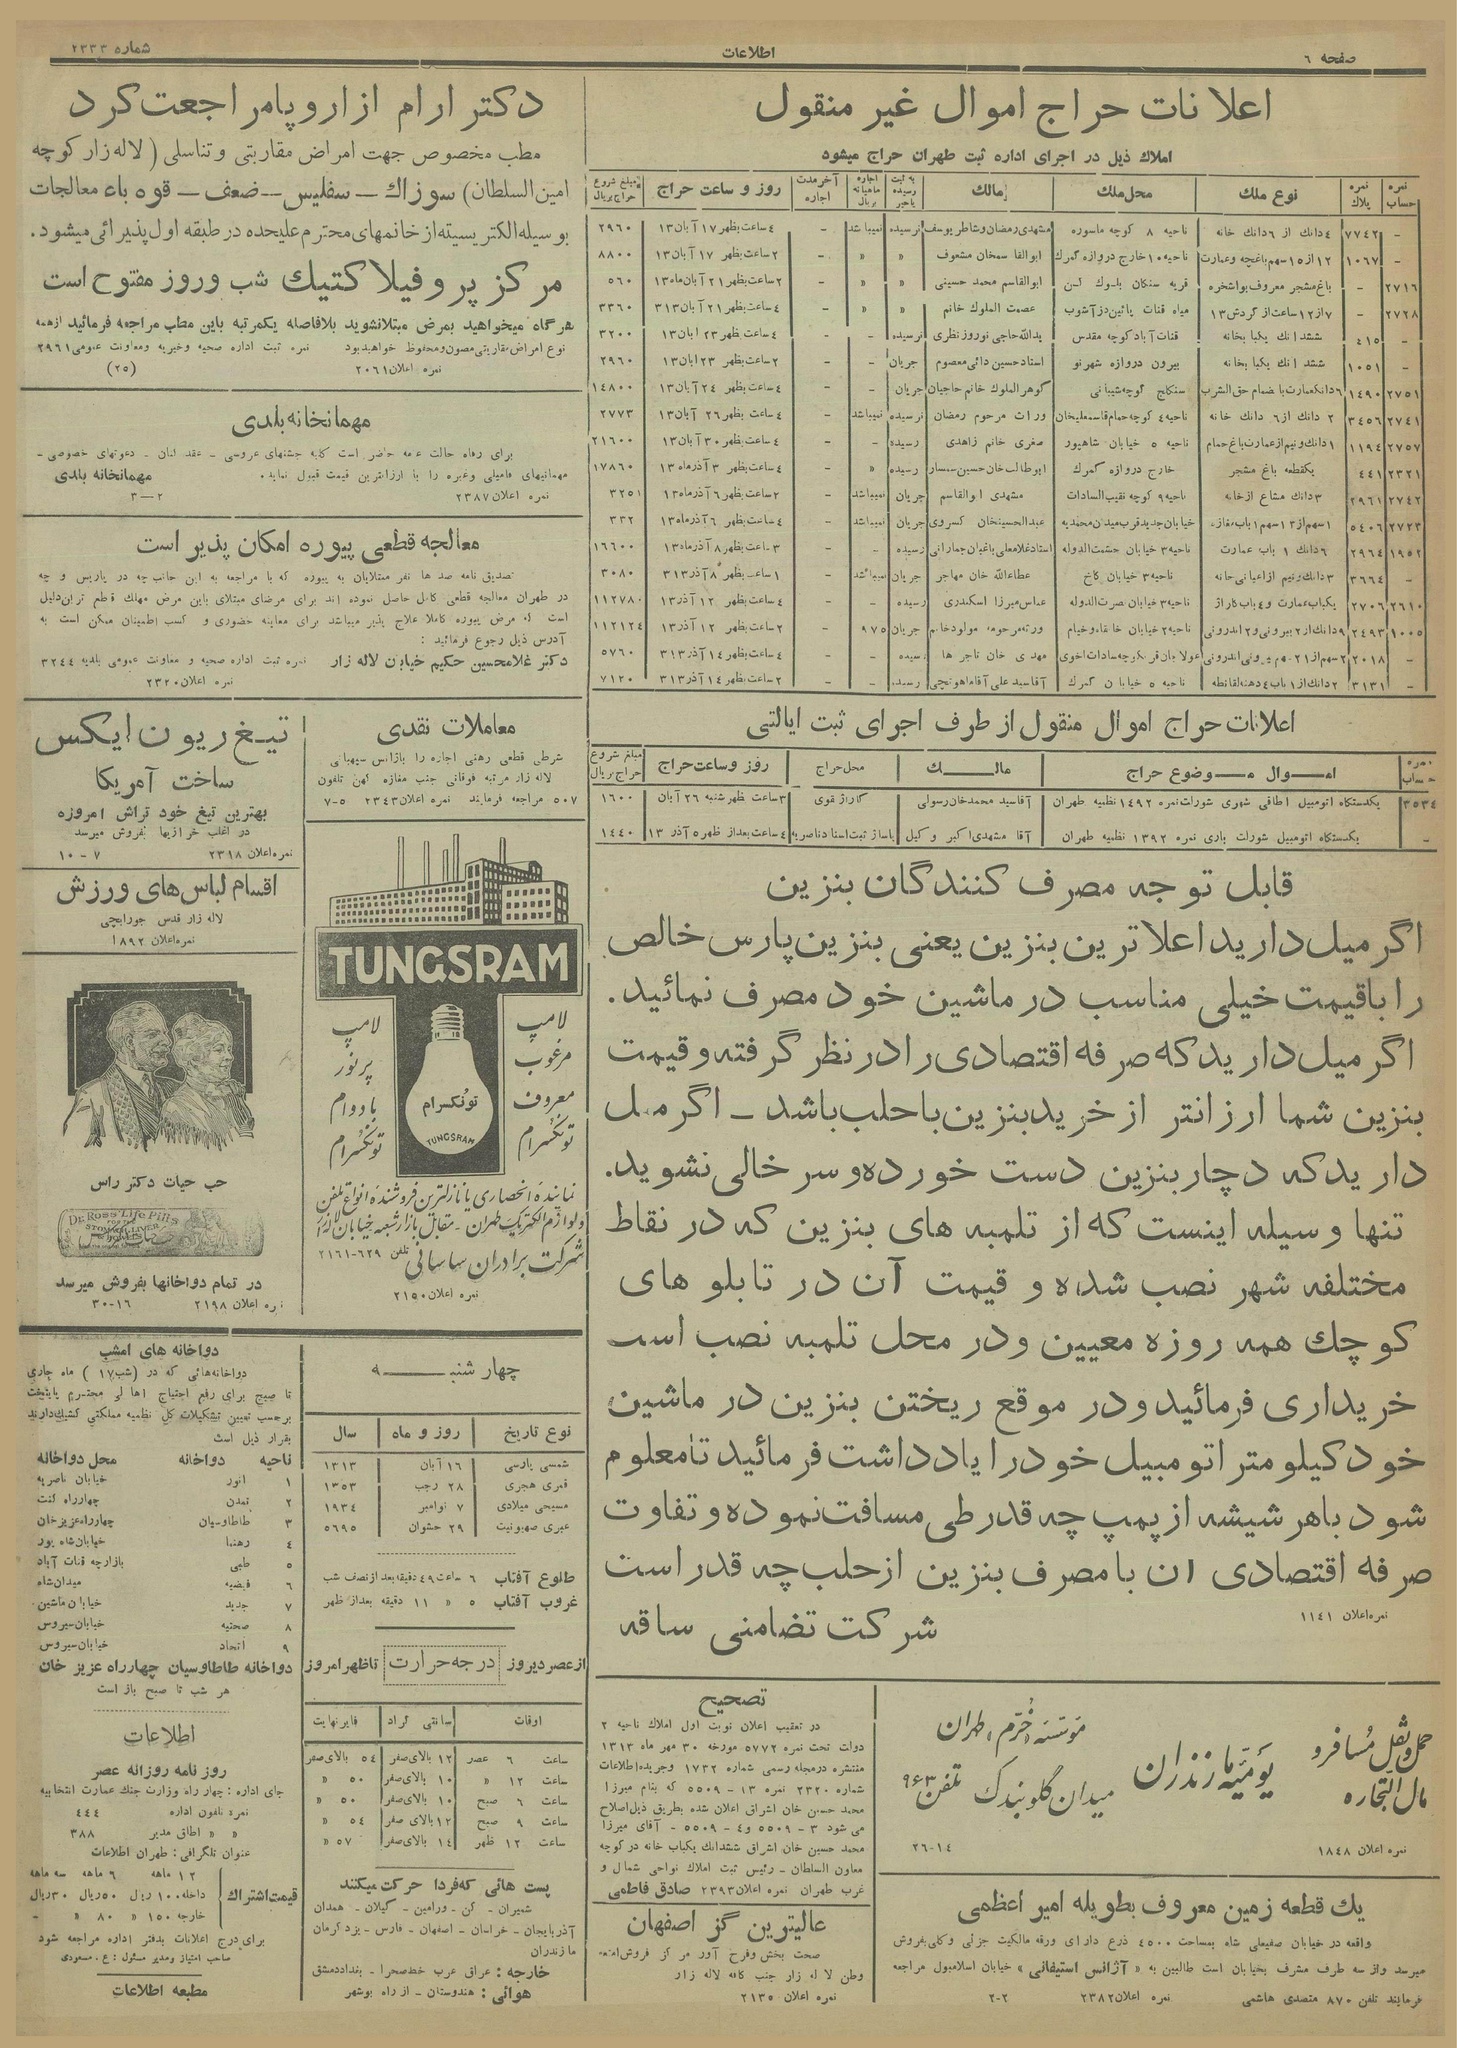 صفحه ٦
اطلاعات
شماره ٢٣٣٣
اعلانات حراج اموال غیر منقول
املاك ذیل در اجرای اداره ثبت طهران حراج میشود
نمره حساب
نمره پلاك
نوع ملك
محل ملك
مالك
اجاره ماهیانه بریال
آخر مدت اجاره
روز و ساعت حراج
مبلغ شروع حراج بریال
- ٧٧٤٢ ٤ دانك از ٦ دانك خانه ناحیه ٨ کوچه ماسوره مشهدی رمضان وشاطر یوسف نرسیده نمیباشد - ٤ ساعت بظهر ١٧ آبان ١٣ ٢٩٦٠
- ١٠٦٧ ١٢ از ١٥ سهم باغچه وعمارت ناحیه ١٠ خارج دروازه گمرك ابوالقاسمخان مشعوف « « - ٢ ساعت بظهر ١٧ آبان ١٣ ٨٨٠٠
٢٧١٦ - باغ مشجر معروف بواشخره ابوالقاسم محمد حسینی « « - ٢ ساعت بظهر ٢١ آبان ماه ١٣ ٥٦٠
٢٧٦٨ - ٧ از ١٢ ساعت از گردش ١٣ میاه قنات پائین دزآشوب عصمت الملوك خانم « « - ٤ ساعت بظهر ٢١ آبان ٣١٣ ٣٣٦٠
- ٤١٥ ششدانك یکبابخانه قنات آباد کوچه مقدس یدالله حاجی نوروز نظری نرسیده - - ٤ ساعت بظهر ٢٣ آبان ١٣ ٣٢٠٠
- ١٠٥١ ششدانك یکبابخانه بیرون دروازه شهرنو استاد حسین دائی معصوم جریان - - ٢ ساعت بظهر ٢٣ آبان ١٣ ٢٩٦٠
٢٧٥١ ١٤٩٠ ٦ دانك عمارت با ضمام حق الشرب سنگلج کوچه شیبانی گوهر الملوك خانم حاجیان جریان - - ٤ ساعت بظهر ٢٤ آبان ١٣ ١٤٨٠٠
٢٧٤١ ٣٤٥٦ ٢ دانك از ٦ دانك خانه ناحیه ٤ کوچه حمام قاسمعلیخان وراث مرحوم رمضان نرسیده نمیباشد - ٤ ساعت بظهر ٢٦ آبان ١٣ ٢٧٧٣
٢٧٥٧ ١١٩٤ ١ دانك ونیم از عمارت باغ حمام ناحیه ٥ خیابان شاهپور صغری خانم زاهدی رسیده - - ٤ ساعت بظهر ٣٠ آبان ١٣ ٢١٦٠٠
٢٣٢١ ٤٤١ یکقطعه باغ مشجر خارج دروازه گمرك ابوطالب خان حسین سمسار رسیده « - ٤ ساعت بظهر ٣ آذر ماه ١٣ ١٧٨٦٠
٢٧٤٢ ٢٩٦١ ٣ دانك مشاع از خانه ناحیه ٩ کوچه نقیب السادات مشهدی ابوالقاسم جریان نمیباشد - ٢ ساعت بظهر ٦ آذر ماه ١٣ ٣٢٥١
٢٧٢٣ ٥٤٠٦ ١ سهم از ١٣ سهم ١ باب مغازه خیابان جدید قرب میدان محمدیه عبدالحسینخان کسروی جریان نمیباشد - ٤ ساعت بظهر ٦ آذر ماه ١٣ ٣٣٢
١٩٥٢ ٢٩٦٤ ٦ دانك ١ باب عمارت ناحیه ٣ خیابان حشمت الدوله استاد غلامعلی باغبان جمارانی رسیده - - ٣ ساعت بظهر ٨ آذر ماه ١٣ ١٦٦٠٠
- ٣٦٦٤ ٣ دانك ونیم از اعیانی خانه ناحیه ٣ خیابان کاخ عطاءالله خان مهاجر جریان نمیباشد - ١ ساعت بظهر ٨ آذر ٣١٣ ٣٠٨٠
٢٦١٠ ٢٧٠٦ یکباب عمارت و ٤ باب گاراژ ناحیه ٣ خیابان نصرت الدوله عباس میرزا اسکندری رسیده - - ٤ ساعت بظهر ١٢ آذر ١٣ ١١٢٧٨٠
١٠٠٥ ٢٤٩٣ ٩ دانك از ٢ بیرونی و ٢ اندرونی ناحیه ٢ خیابان خانقاه وخیام ورثه مرحومه مولود خانم جریان ٩٧٥ - ٢ ساعت بظهر ١٢ آذر ١٣ ١١٢١٢٤
- ٢٠١٨ مهدی خان تاجر ها رسیده - - ٤ ساعت بظهر ١٤ آذر ٣١٣ ٥٧٦٠
- ٣١٣١ ٢ دانك از ١ باب ٤ دهنه لقانطه ناحیه ٥ خیابان گمرك آقا سید علی آقا ماهوتچی رسیده - - ٢ ساعت بظهر ١٤ آذر ٣١٣ ٧١٢٠
اعلانات حراج اموال منقول از طرف اجرای ثبت ایالتی
نمره حساب
اموال موضوع حراج
مالك
محل حراج
روز وساعت حراج
مبلغ شروع حراج بریال
٣٥٣٤ یکدستگاه اتومبیل اطاقی شهری شورلت نمره ١٤٩٢ نظمیه طهران آقا سید محمد خان رسولی گاراژ قوی ٣ ساعت ظهر شنبه ٢٦ آبان ١٦٠٠
- یکدستگاه اتومبیل شورلت باری نمره ١٣٩٢ نظمیه طهران آقا مشهدی اکبر وکیل پاساژ ثبت اسناد ناصریه ٤ ساعت بعد از ظهر ٥ آذر ١٣ ١٤٤٠
قابل توجه مصرف کنندگان بنزین
اگر میل دارید اعلا ترین بنزین یعنی بنزین پارس خالص
را باقیمت خیلی مناسب در ماشین خود مصرف نمائید.
اگر میل دارید که صرفه اقتصادی را در نظر گرفته و قیمت
بنزین شما ارزانتر از خرید بنزین با حلب باشد ــ اگر میل
دارید که دچار بنزین دست خورده و سر خالی نشوید.
تنها وسیله اینست که از تلمبه های بنزین که در نقاط
مختلفه شهر نصب شده و قیمت آن در تابلو های
کوچك همه روزه معیین و در محل تلمبه نصب است
خریداری فرمائید و در موقع ریختن بنزین در ماشین
خود کیلومتر اتومبیل خود را یادداشت فرمائید تا معلوم
شود با هر شیشه از پمپ چه قدر طی مسافت نموده و تفاوت
صرفه اقتصادی ان با مصرف بنزین از حلب چه قدر است
نمره اعلان ١١٤١
شرکت تضامنی ساقه
حمل و نقل مسافر و
مال التجاره
یومیه مازندران
موسسه اخترم ، طهران
میدان گلوبندك تلفن ٩٦٣
نمره اعلان ١٨٤٨
٢٦-١٤
یك قطعه زمین معروف بطویله امیر اعظمی
واقعه در خیابان صفیعلی شاه بمساحت ٤٥٠٠ ذرع دارای ورقه مالکیت جزئی وکلی بفروش
میرسد واز سه طرف مشرف بخیابان است طالبین به « آژانس استیفانی » خیابان اسلامبول مراجعه
فرمایند تلفن ٨٧٠ متصدی هاشمی نمره اعلان ٢٣٨٢ ٢-٢
تصحیح
در تعقیب اعلان نوبت اول املاك ناحیه ٢
دولت تحت نمره ٥٧٧٢ مورخه ٣٠ مهر ماه ١٣١٣
منتشره در مجله رسمی شماره ١٧٣٢ و جریده اطلاعات
شماره ٢٣٢٠ نمره ١٣ - ٥٥٠٩ که بنام میرزا
محمد حسین خان اشراق اعلان شده بطریق ذیل اصلاح
می شود ٣ - ٥٥٠٩ و ٤ - ٥٥٠٩ - آقای میرزا
محمد حسین خان اشراق ششدانك یکباب خانه در کوچه
معاون السلطان - رئیس ثبت املاك نواحی شمال و
غرب طهران نمره اعلان ٢٣٩٣ صادق فاطمی
عالیترین گز اصفهان
صحت بخش وفرح آور مرکز فروش
وطن لاله زار جنب کافه لاله زار
نمره اعلان ٢١٣٥
دکتر ارام از اروپا مراجعت کرد
مطب مخصوص جهت امراض مقاربتی و تناسلی ( لاله زار کوچه
امین السلطان) سوزاك ــ سفلیس ــ ضعف ــ قوه باء معالجات
بوسیله الکتریسیته از خانمهای محترم علیحده در طبقه اول پذیرائی میشود.
مرکز پروفیلاکتیك شب و روز مفتوح است
هر گاه میخواهید بمرض مبتلا نشوید بلافاصله یکمرتبه باین مطب مراجعه فرمائید از همه
نوع امراض مقاربتی مصون و محفوظ خواهید بود نمره ثبت اداره صحیه وخیریه ومعاونت عمومی ٢٩٦١
نمره اعلان ٢٠٦١ (٢٥)
مهمانخانه بلدی
برای رفاه حالت عامه حاضر است کلیه جشنهای عروسی - عقد کنان - دعوتهای خصوصی -
مهمانیهای فامیلی وغیره را با ارزانترین قیمت قبول نماید. مهمانخانه بلدی
نمره اعلان ٢٣٨٧ ٢-٣
معالجه قطعی پیوره امکان پذیر است
تصدیق نامه صد ها نفر مبتلایان به پیوره که با مراجعه به این جانب چه در پاریس و چه
در طهران معالجه قطعی کامل حاصل نموده اند برای مرضای مبتلای باین مرض مهلك قطع ترین دلیل
است که مرض پیوره کاملا علاج پذیر میباشد برای معاینه حضوری و کسب اطمینان ممکن است به
آدرس ذیل رجوع فرمائید :
دکتر غلامحسین حکیم خیابان لاله زار نمره ثبت اداره صحیه و معاونت عمومی بلدیه ٣٢٤٤
نمره اعلان ٢٣٢٠
معاملات نقدی
شرطی قطعی رهنی اجاره را بآژانس سپهبانی
لاله زار مرتبه فوقانی جنب مغازه کهن تلفون
٥٠٧ مراجعه فرمایند نمره اعلان ٢٣٤٣ ٥-٧
TUNGSRAM
لامپ
مرغوب
معروف
تونگسرام
لامپ
پر نور
بادوام
تونگسرام
تونکسرام
TUNGSRAM
نماینده انحصاری یا نازلترین فروشنده انواع تلفن
ولوازم الکتریك طهران - مقابل بازار شعبه خیابان لاله زار
شرکت برادران ساسانی تلفن ٦٢٩-٢١٦١
نمره اعلان ٢١٥٠
تیغ ریون ایکس
ساخت آمریکا
بهترین تیغ خود تراش امروزه
در اغلب خرازیها بفروش میرسد
نمره اعلان ٢٣١٨ ٧ - ١٠
اقسام لباس های ورزش
لاله زار قدس جورابچی
نمره اعلان ١٨٩٢
حب حیات دکتر راس
DR. ROSS' LIFE PILLS
در تمام دواخانها بفروش میرسد
نمره اعلان ٢١٩٨ ١٦-٣٠
چهار شنبــــــه
نوع تاریخ روز و ماه سال
شمسی پارسی ١٦ آبان ١٣١٣
قمری هجری ٢٨ رجب ١٣٥٣
مسیحی میلادی ٧ نوامبر ١٩٣٤
عبری صهیونیت ٢٩ حشوان ٥٦٩٥
طلوع آفتاب ٦ ساعت ٤٩ دقیقه بعد از نصف شب
غروب آفتاب ٥ « ١١ دقیقه بعد از ظهر
از عصر دیروز درجه حرارت تا ظهر امروز
اوقات سانتی گراد فارنهایت
ساعت ٦ عصر ١٢ بالای صفر ٥٤ بالای صفر
ساعت ١٢ « ١٠ بالای صفر ٥٠ «
ساعت ٦ صبح ١٠ بالای صفر ٥٠ «
ساعت ٩ صبح ١٢ بالای صفر ٥٤ «
ساعت ١٢ ظهر ١٤ بالای صفر ٥٧ «
پست هائی که فردا حرکت میکنند
شمیران - کن - ورامین - گیلان - همدان
آذربایجان - خراسان - اصفهان - فارس - یزد کرمان
مازندران
خارجه : عراق عرب خط صحرا - بغداد دمشق
هوائی : هندوستان - از راه بوشهر
دواخانه های امشب
دواخانه هائی که در (شب ١٧ ) ماه جاری
تا صبح برای رفع احتیاج اهالی محترم پایتخت
برحسب تعیین تشکیلات کل نظمیه مملکتی کشیك دارند
بقرار ذیل است
ناحیه دواخانه محل دواخانه
١ انور خیابان ناصریه
٢ تمدن چهارراه کنت
٣ طاطاوسیان چهارراه عزیز خان
٤ رهنما خیابان شاه پور
٥ طبی بازارچه قنات آباد
٦ فیضیه میدان شاه
٧ جدید خیابان ماشین
٨ صحتیه خیابان سیروس
٩ اتحاد خیابان سیروس
دواخانه طاطاوسیان چهارراه عزیز خان
هر شب تا صبح باز است
اطلاعات
روز نامه روزانه عصر
جای اداره : چهار راه وزارت جنك عمارت انتخابیه
نمره تلفون اداره ٤٤٤
« « اطاق مدیر ٣٨٨
عنوان تلگرافی : طهران اطلاعات
قیمت اشتراك
١٢ ماهه ٦ ماهه سه ماهه
داخله ١٠٠ ریال ٥٠ ریال ٣٠ ریال
خارجه ١٥٠ « ٨٠ « -
برای درج اعلانات بدفتر اداره مراجعه شود
صاحب امتیاز ومدیر مسئول : ع . مسعودی
مطبعه اطلاعات